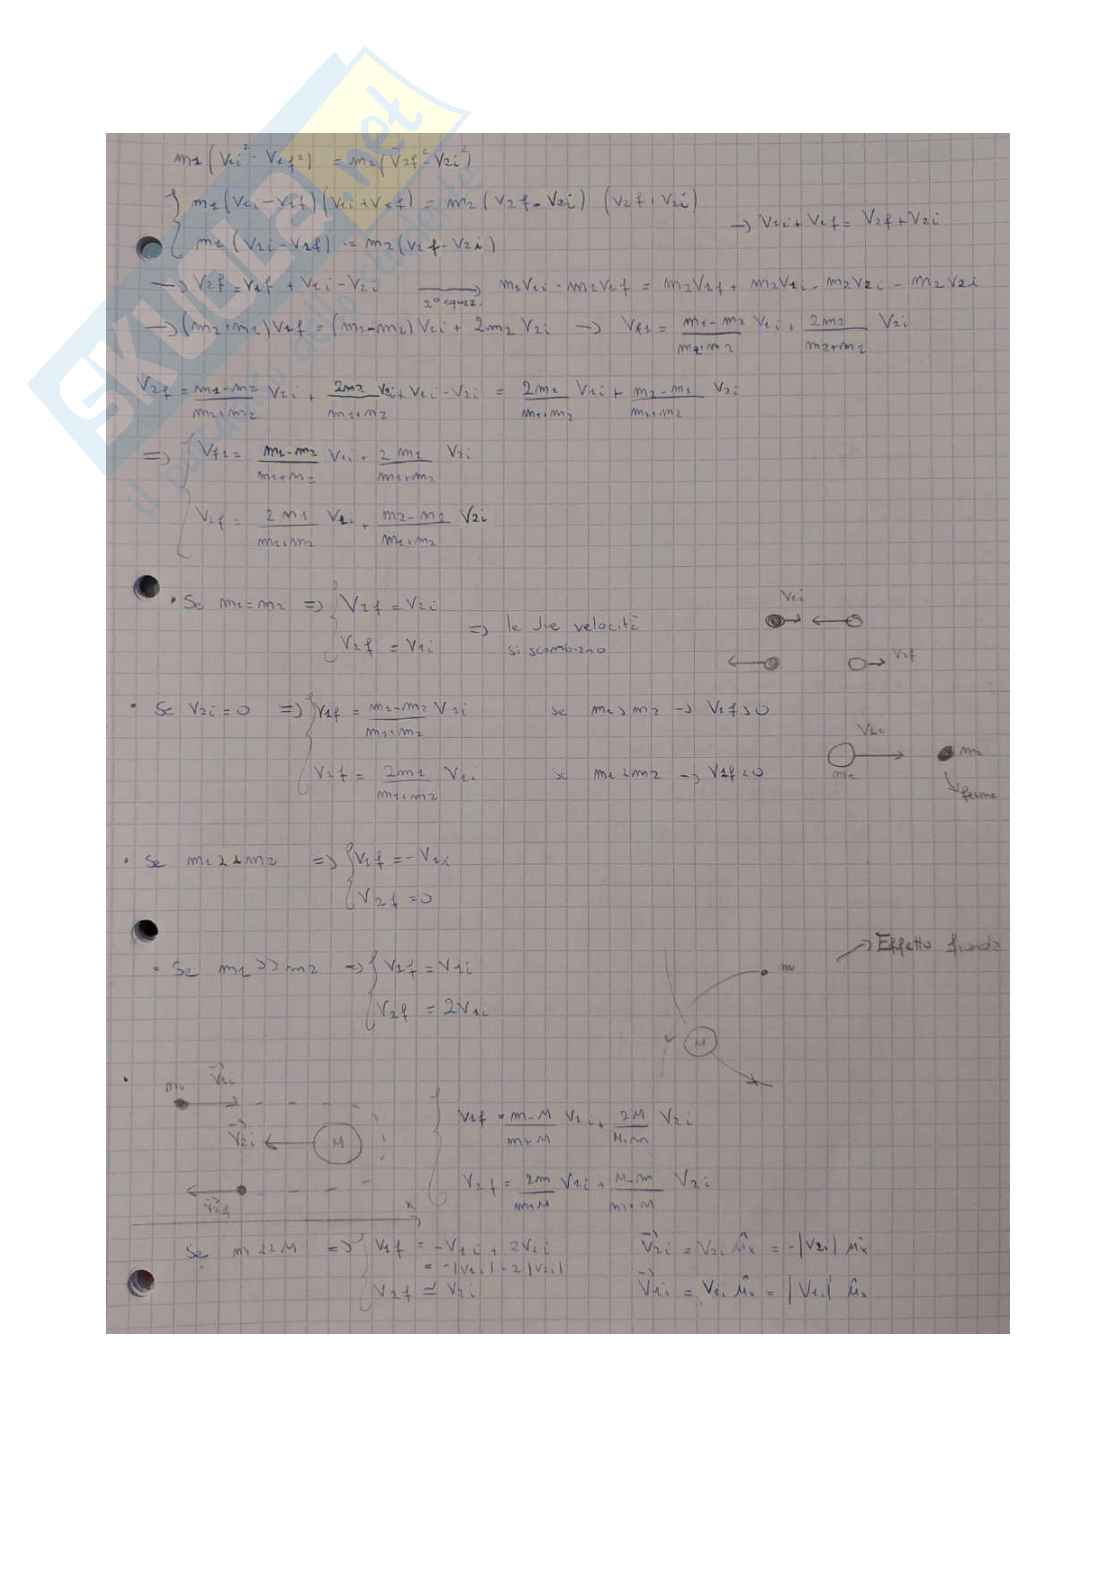 SKUOLA.net
m1(V1i² - V1f²) = m2(V2f² - V2i²)
{ m1(V1i - V1f)(V1i + V1f) = m2(V2f - V2i)(V2f + V2i) → V1i + V1f = V2f + V2i
m1(V1i - V1f) = m2(V2f - V2i)
→ V2f = V1f + V1i - V2i → 2ª equaz. m1V1i - m1V1f = m2V1f + m2V1i - m2V2i - m2V2i
→ (m1+m2)V1f = (m1-m2)V1i + 2m2 V2i → Vf1 = (m1-m2)/(m1+m2) V1i + 2m2/(m1+m2) V2i
V2f = (m1-m2)/(m1+m2) V1i + 2m2/(m1+m2) V2i + V1i - V2i = 2m1/(m1+m2) V1i + (m2-m1)/(m1+m2) V2i
⇒ { Vf1 = (m1-m2)/(m1+m2) V1i + 2m2/(m1+m2) V2i
V2f = 2m1/(m1+m2) V1i + (m2-m1)/(m1+m2) V2i
• Se m1=m2 ⇒ { V1f = V2i
V2f = V1i ⇒ le due velocità si scambiano
V1i
V2f
• Se V2i=0 ⇒ { V1f = (m1-m2)/(m1+m2) V1i se m1>m2 → V1f>0
V2f = 2m1/(m1+m2) V1i se m1<m2 → V1f<0
V1i
m1
m2
ferma
• Se m1<<m2 ⇒ { V1f = -V1i
V2f = 0
• Se m1>>m2 ⇒ { V1f = V1i
V2f = 2V1i
→ Effetto fionda
m
M
•
m V1i
V2i M
V1f
x
{ V1f = (m-M)/(m+M) V1i + 2M/(M+m) V2i
V2f = 2m/(m+M) V1i + (M-m)/(m+M) V2i
Se m<<M ⇒ { V1f = -V1i + 2V2i
= -|V1i| - 2|V2i|
V2f ≃ V2i
V2i = V2i ûx = -|V2i| ûx
V1i = V1i ûx = |V1i| ûx